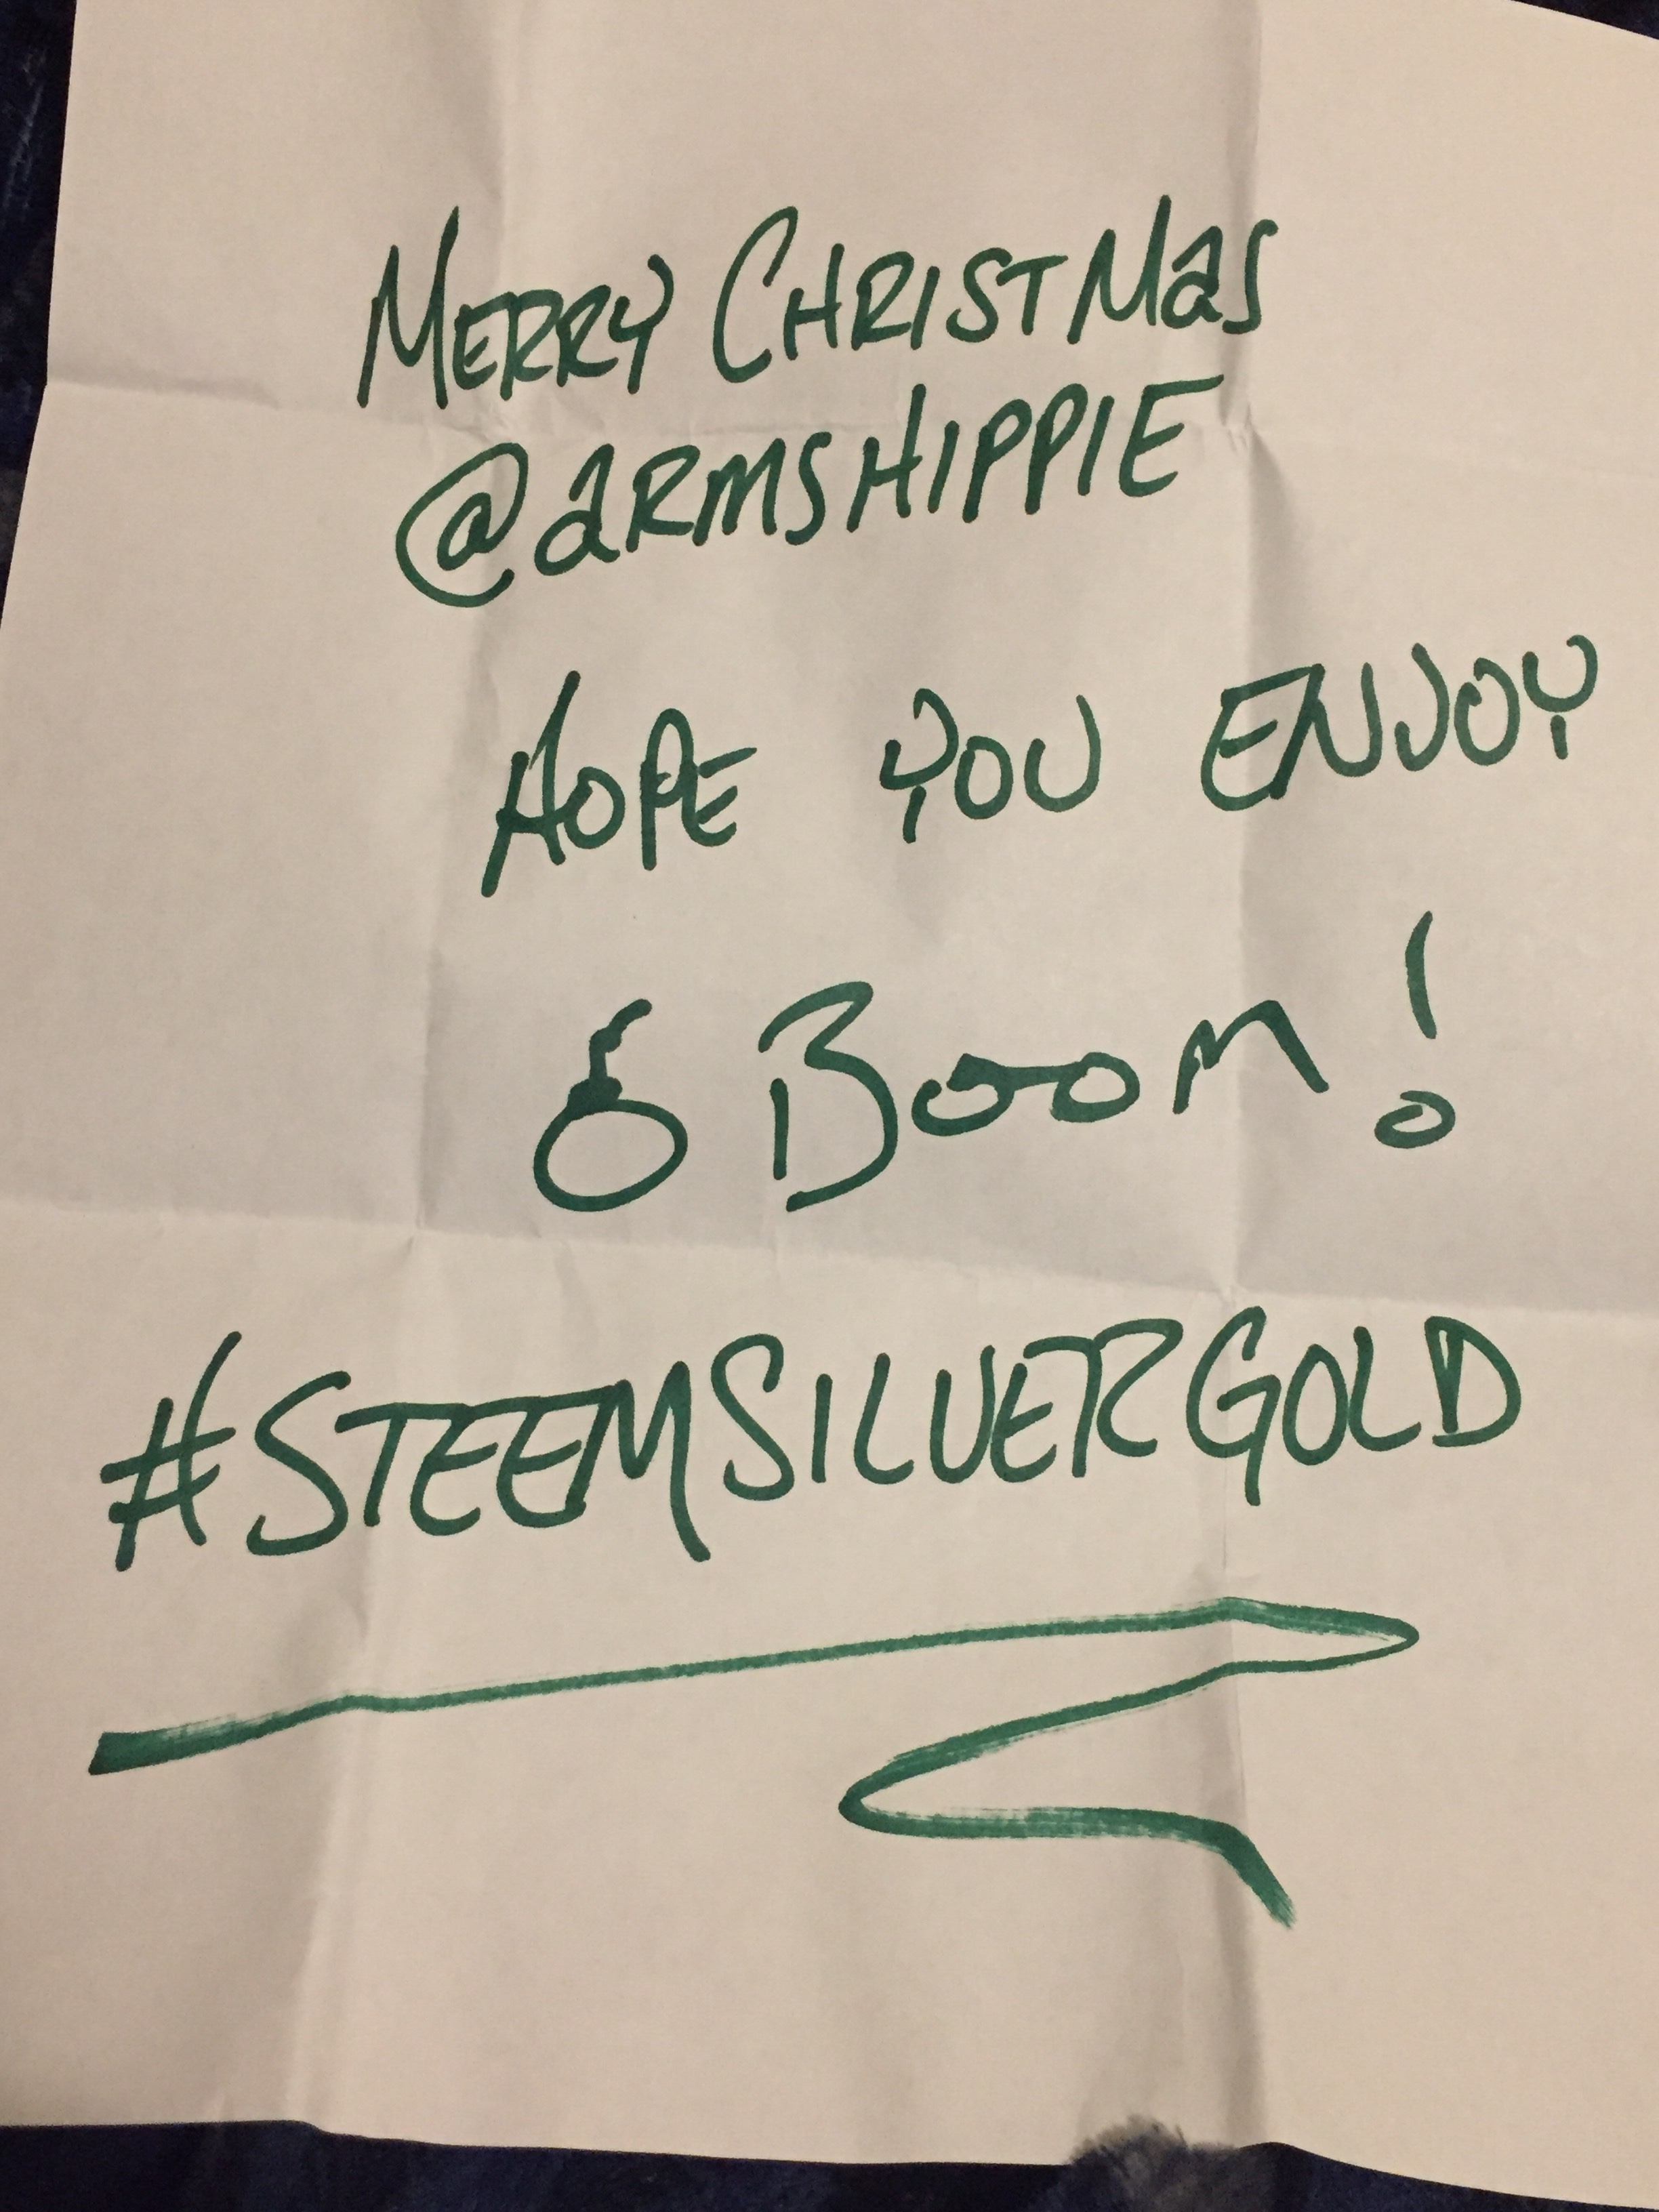 MERRY CHRISTMaS
@aRMSHIPPIE
HOPE YOU ENJOY
BOOM!
#STEEMSILVERGOLD